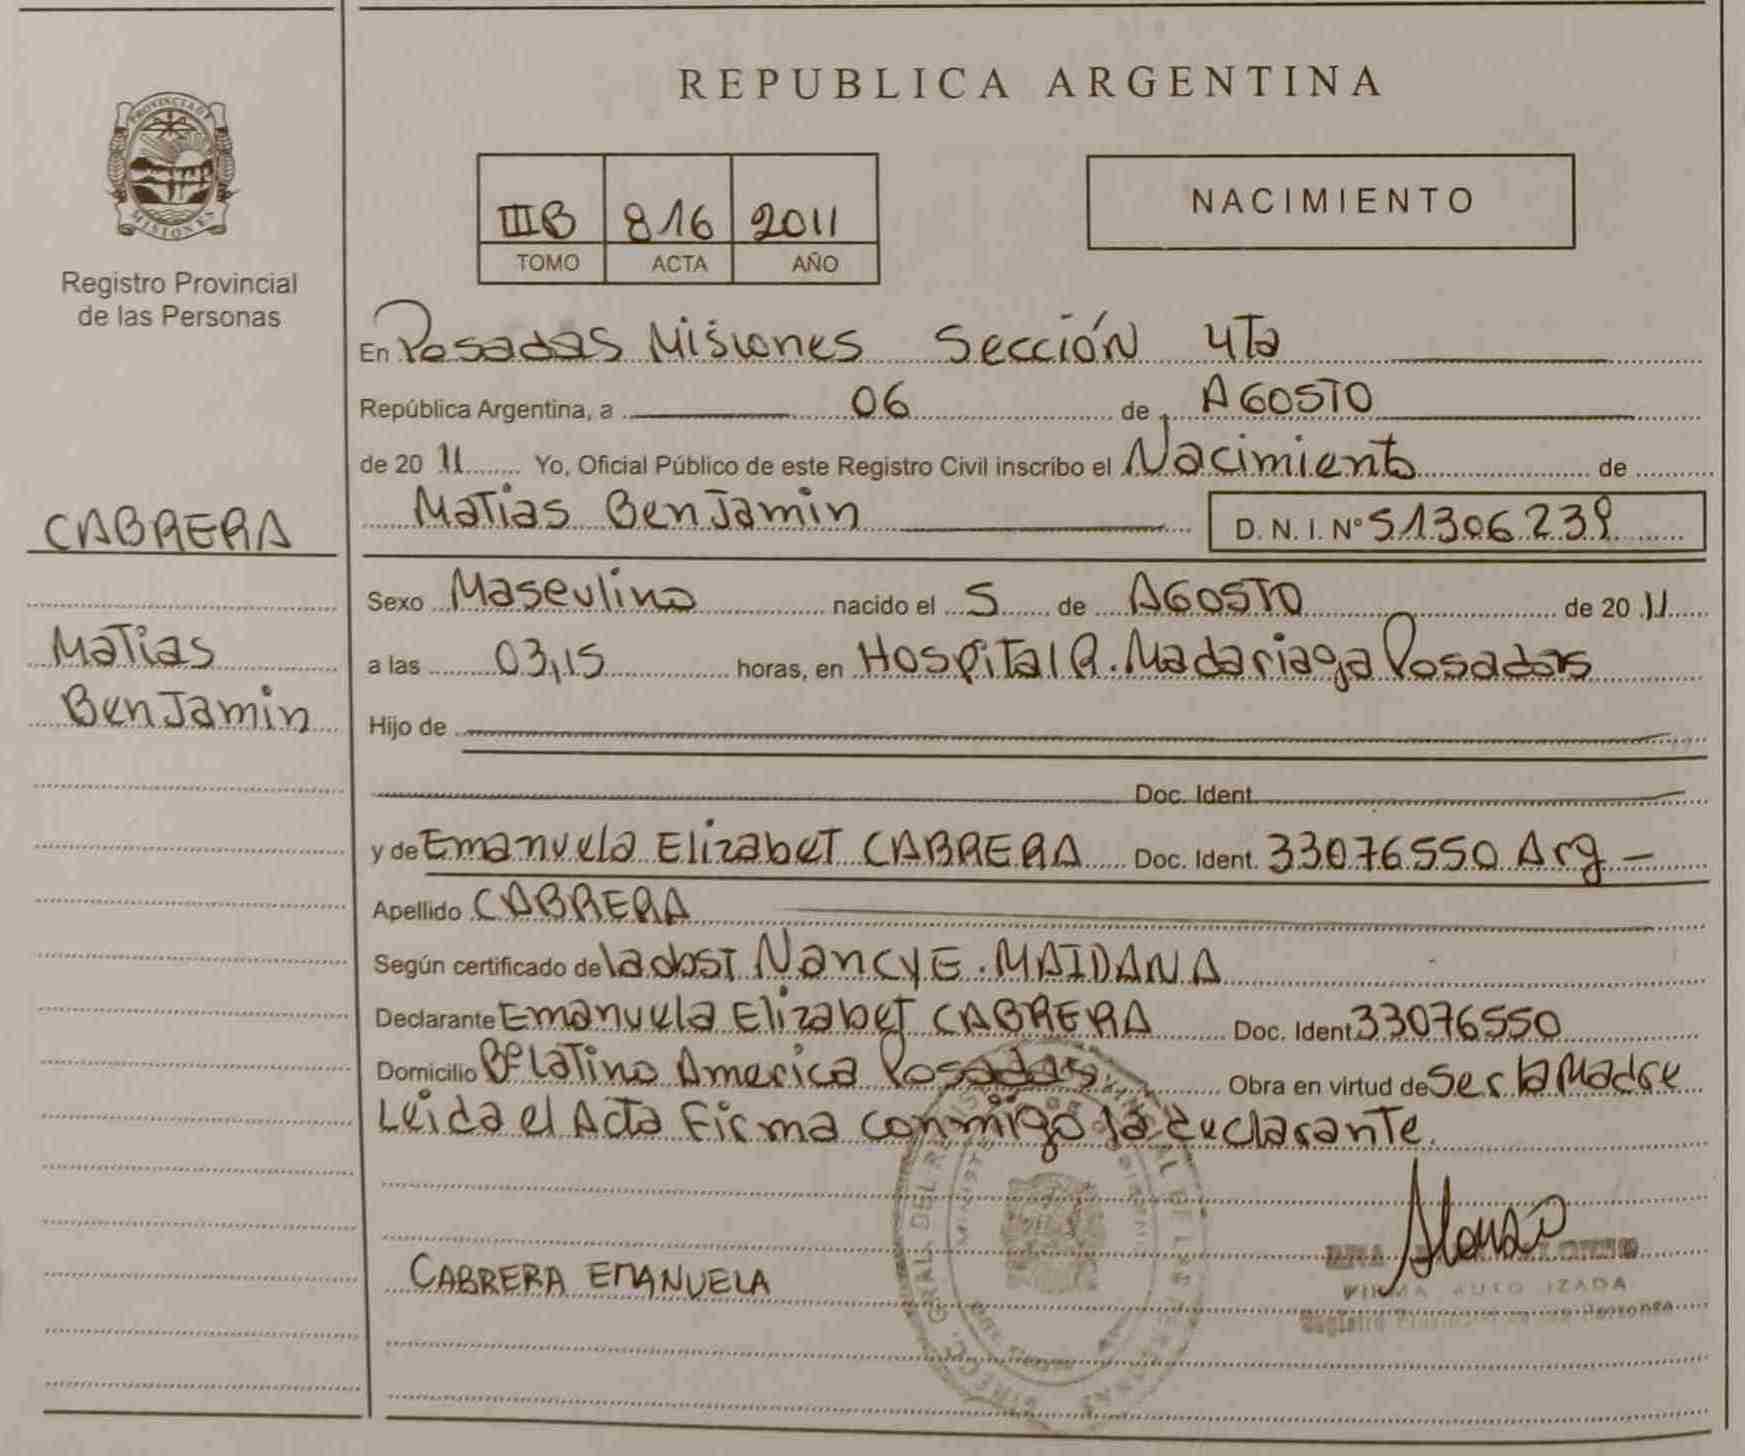 PROVINCIA DE
MISIONES
Registro Provincial
de las Personas
CABRERA
Matias
BenJamin
REPUBLICA ARGENTINA
IIIB 816 2011
TOMO ACTA AÑO
NACIMIENTO
En Posadas Misiones Sección 4Ta
República Argentina, a 06 de AGOSTO
de 20 11 Yo, Oficial Público de este Registro Civil inscribo el Nacimiento de
Matias BenJamin D. N. I. Nº 51306239
Sexo Masculino nacido el 5 de AGOSTO de 20 11
a las 03,15 horas, en Hospital R. Madariaga Posadas
Hijo de
Doc. Ident.
y de Emanuela Elizabet CABRERA Doc. Ident. 33076550 Arg -
Apellido CABRERA
Según certificado de la obst Nancy E. MAIDANA
Declarante Emanuela Elizabet CABRERA Doc. Ident 33076550
Domicilio Bº Latino America Posadas Obra en virtud de Ser la Madre
Leida el Acta Firma conmigo la declarante.
CABRERA EMANUELA
Alonso
FIRMA AUTORIZADA
Registro Provincial de las Personas